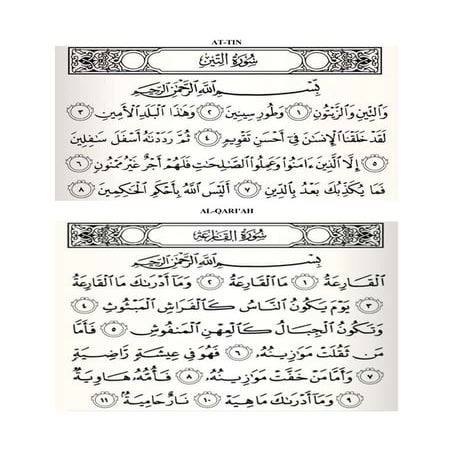 AT-TIN
سُورَةُ التِّينِ
بِسْمِ اللَّهِ الرَّحْمَٰنِ الرَّحِيمِ
وَالتِّينِ وَالزَّيْتُونِ ١ وَطُورِ سِينِينَ ٢ وَهَٰذَا الْبَلَدِ الْأَمِينِ ٣
لَقَدْ خَلَقْنَا الْإِنسَانَ فِي أَحْسَنِ تَقْوِيمٍ ٤ ثُمَّ رَدَدْنَاهُ أَسْفَلَ سَافِلِينَ
٥ إِلَّا الَّذِينَ ءَامَنُوا وَعَمِلُوا الصَّالِحَاتِ فَلَهُمْ أَجْرٌ غَيْرُ مَمْنُونٍ ٦
فَمَا يُكَذِّبُكَ بَعْدُ بِالدِّينِ ٧ أَلَيْسَ اللَّهُ بِأَحْكَمِ الْحَاكِمِينَ ٨
AL-QARI'AH
سُورَةُ القَارِعَةِ
بِسْمِ اللَّهِ الرَّحْمَٰنِ الرَّحِيمِ
الْقَارِعَةُ ١ مَا الْقَارِعَةُ ٢ وَمَا أَدْرَاكَ مَا الْقَارِعَةُ
٣ يَوْمَ يَكُونُ النَّاسُ كَالْفَرَاشِ الْمَبْثُوثِ ٤
وَتَكُونُ الْجِبَالُ كَالْعِهْنِ الْمَنفُوشِ ٥ فَأَمَّا
مَن ثَقُلَتْ مَوَازِينُهُ ٦ فَهُوَ فِي عِيشَةٍ رَّاضِيَةٍ
٧ وَأَمَّا مَنْ خَفَّتْ مَوَازِينُهُ ٨ فَأُمُّهُ هَاوِيَةٌ
٩ وَمَا أَدْرَاكَ مَا هِيَهْ ١٠ نَارٌ حَامِيَةٌ ١١